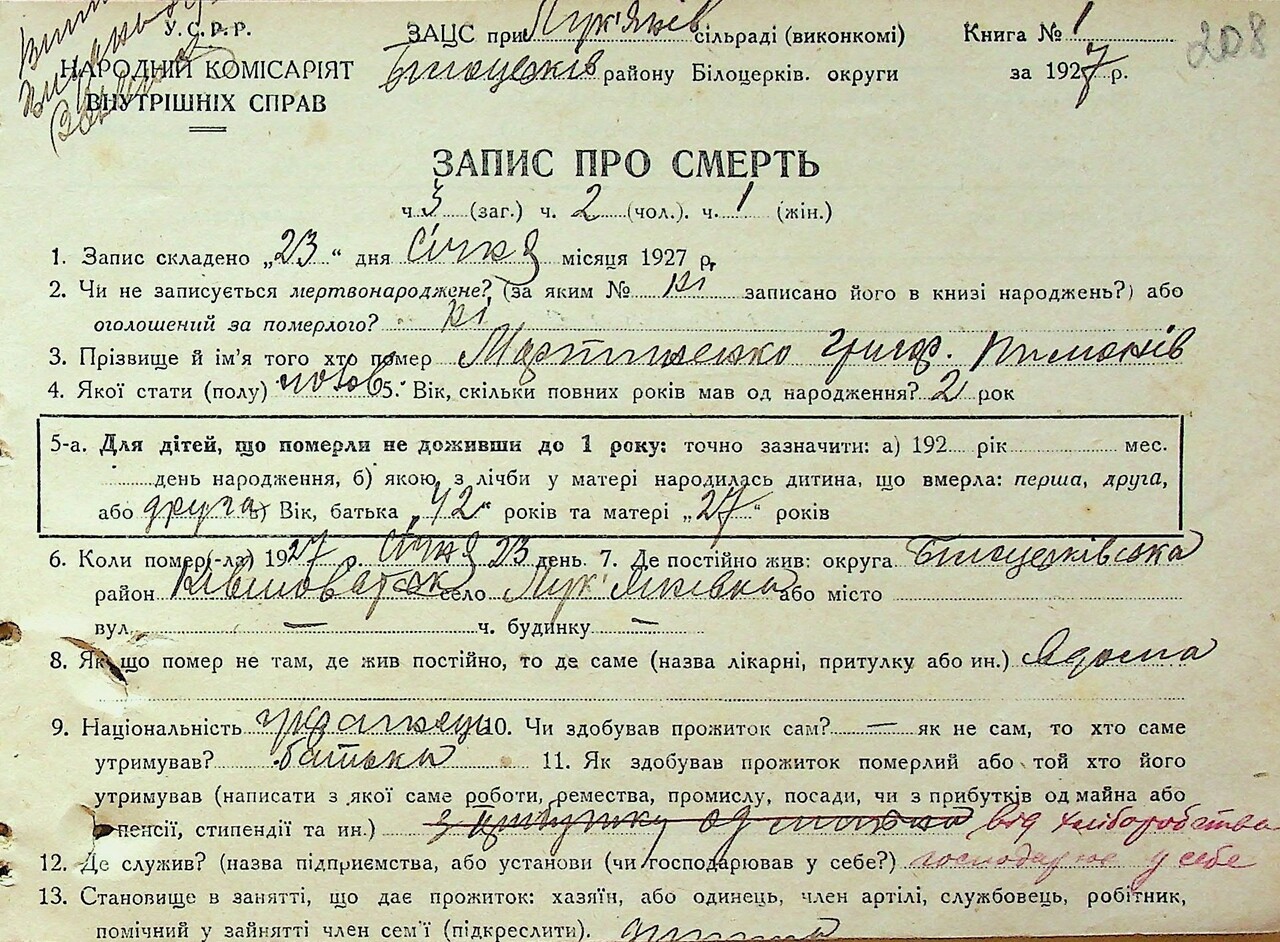 У.С.Р.Р.
НАРОДНІЙ КОМІСАРІЯТ
ВНУТРІШНІХ СПРАВ
ЗАЦС при Лук'янів сільраді (виконкомі)
району Білоцерків. округи
Книга № 1
за 1927 р.
208
ЗАПИС ПРО СМЕРТЬ
ч. 3 (заг.) ч. 2 (чол.). ч. 1 (жін.)
1. Запис складено „23“ дня січня місяця 1927 р.
2. Чи не записується мертвонароджене? (за яким № ні записано його в книзі народжень?) або
оголошений за померлого? ні
3. Прізвище й ім'я того хто помер Мартиненко Григ.
4. Якої стати (полу) чолов 5. Вік, скільки повних років мав од народження? 2 рок
5-а. Для дітей, що померли не доживши до 1 року: точно зазначити: а) 192 рік мес.
день народження, б) якою з лічби у матері народилась дитина, що вмерла: перша, друга,
або друга в) Вік, батька „42“ років та матері „27“ років
6. Коли помер(-ла) 1927 р. січня 23 день. 7. Де постійно жив: округа Білоцерківська
район село Лук'янівка або місто
вул. — ч. будинку —
8. Якщо помер не там, де жив постійно, то де саме (назва лікарні, притулку або ин.) вдома
9. Національність українець 10. Чи здобував прожиток сам? — як не сам, то хто саме
утримував? батько 11. Як здобував прожиток померлий або той хто його
утримував (написати з якої саме роботи, ремества, промислу, посади, чи з прибутків од майна або
пенсії, стипендії та ин.) з прибутку од майна від хліборобства
12. Де служив? (назва підприємства, або установи (чи господарював у себе?) господарює у себе
13. Становище в занятті, що дає прожиток: хазяїн, або одинець, член артілі, службовець, робітник,
помічний у зайнятті член сем'ї (підкреслити). дитина